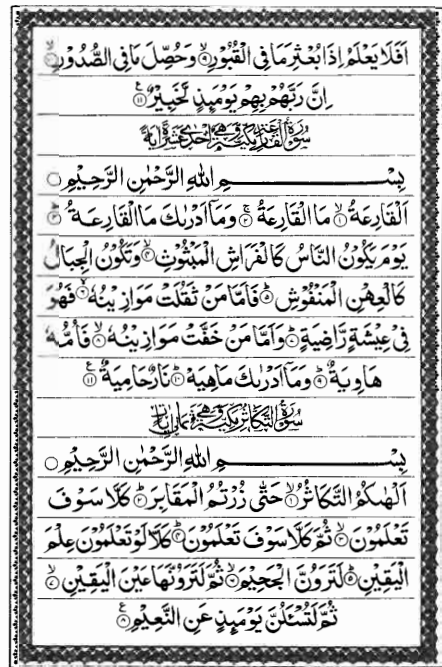 اَفَلَا يَعۡلَمُ اِذَا بُعۡثِرَ مَا فِى الۡقُبُوۡرِۙ‏﴿۹﴾ وَحُصِّلَ مَا فِى الصُّدُوۡرِۙ‏﴿۱۰﴾
اِنَّ رَبَّهُمۡ بِهِمۡ يَوۡمَٮِٕذٍ لَّخَبِيۡرٌ‏﴿۱۱﴾
سُوۡرَةُ الۡقَارِعَةِ مَكِّيَّةٌ وَّهِىَ اِحۡدٰى عَشَرَةَ اٰيَةً
بِسۡمِ اللهِ الرَّحۡمٰنِ الرَّحِيۡمِ
اَلۡقَارِعَةُۙ‏﴿۱﴾ مَا الۡقَارِعَةُ‌ۚ‏﴿۲﴾ وَمَاۤ اَدۡرٰٮكَ مَا الۡقَارِعَةُؕ‏﴿۳﴾
يَوۡمَ يَكُوۡنُ النَّاسُ كَالۡفَرَاشِ الۡمَبۡثُوۡثِۙ‏﴿۴﴾ وَتَكُوۡنُ الۡجِبَالُ
كَالۡعِهۡنِ الۡمَنۡفُوۡشِؕ‏﴿۵﴾ فَاَمَّا مَنۡ ثَقُلَتۡ مَوَازِيۡنُهٗۙ‏﴿۶﴾ فَهُوَ
فِىۡ عِيۡشَةٍ رَّاضِيَةٍؕ‏﴿۷﴾ وَاَمَّا مَنۡ خَفَّتۡ مَوَازِيۡنُهٗۙ‏﴿۸﴾ فَاُمُّهٗ
هَاوِيَةٌؕ‏﴿۹﴾ وَمَاۤ اَدۡرٰٮكَ مَا هِيَهۡؕ‏﴿۱۰﴾ نَارٌ حَامِيَةٌ‏﴿۱۱﴾
سُوۡرَةُ التَّكَاثُرِ مَكِّيَّةٌ وَّهِىَ ثَمَانُ اٰيَاتٍ
بِسۡمِ اللهِ الرَّحۡمٰنِ الرَّحِيۡمِ
اَلۡهٰٮكُمُ التَّكَاثُرُۙ‏﴿۱﴾ حَتّٰى زُرۡتُمُ الۡمَقَابِرَؕ‏﴿۲﴾ كَلَّا سَوۡفَ
تَعۡلَمُوۡنَۙ‏﴿۳﴾ ثُمَّ كَلَّا سَوۡفَ تَعۡلَمُوۡنَؕ‏﴿۴﴾ كَلَّا لَوۡ تَعۡلَمُوۡنَ عِلۡمَ
الۡيَقِيۡنِؕ‏﴿۵﴾ لَتَرَوُنَّ الۡجَحِيۡمَۙ‏﴿۶﴾ ثُمَّ لَتَرَوُنَّهَا عَيۡنَ الۡيَقِيۡنِۙ‏﴿۷﴾
ثُمَّ لَـتُسۡـَٔـلُنَّ يَوۡمَٮِٕذٍ عَنِ النَّعِيۡمِ‏﴿۸﴾